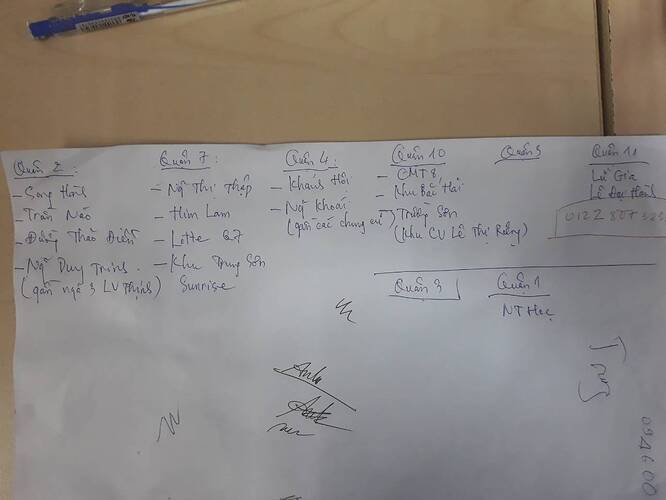 Quận 2:
- Song Hành
- Trần Não
- Đặng Thảo Điền
- Ng Duy Trinh
(gần ngã 3 LV Thịnh)
Quận 7:
- Ng Thị Thập
- Him Lam
- Lotte Q7
- Khu Trung Sơn
Sunrise
Quận 4:
- Khánh Hội
- Ng Khoái
(gần các chung cư)
Quận 10
- CMT8,
- Khu Bắc Hải
- Trường Sơn
(Khu CV Lê Thị Riêng)
Quận 5
Quận 11
Lữ Gia
Lê Đại Hành
0122 807 323
Quận 3
Quận 1
NT Học
Trng
094600